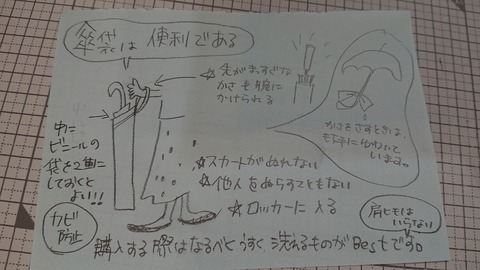 傘袋は 便利である
☆先がまっすぐな
かさも腕に
かけられる
かさをさすときは、
もち手にゆわいて
いまする。
中に
ビニールの
袋を2重に
しておくと
よい!!
☆スカートがぬれない
☆他人をぬらすこともない
☆ロッカーに入る
カビ
防止
肩ヒモは
いらない
購入する際はなるべくうすく、洗えるものがBestです。